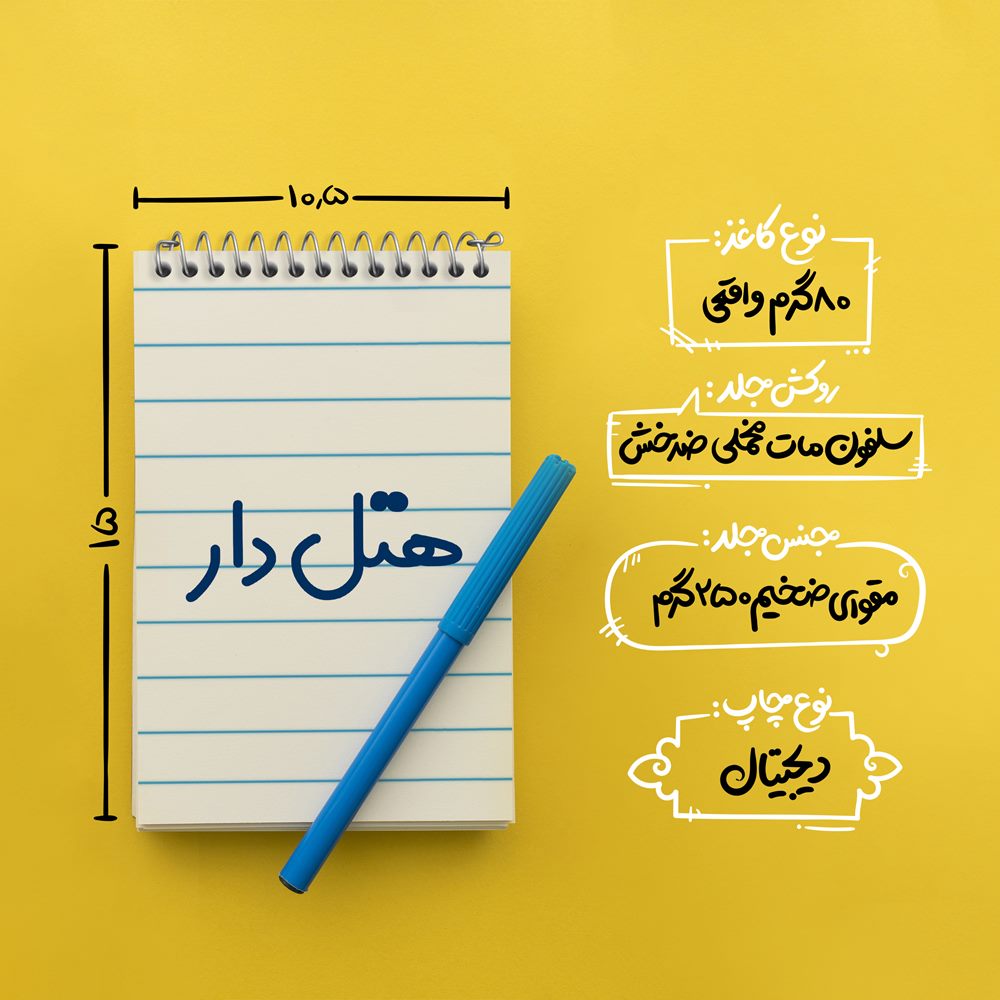 ۱۰٫۵
۱۵
هتل دار
نوع کاغذ:
۸۰گرم واقعی
روکش جلد:
سلفون مات مخملی ضدخش
جنس جلد:
مقوای ضخیم ۲۵۰گرم
نوع چاپ:
دیجیتال